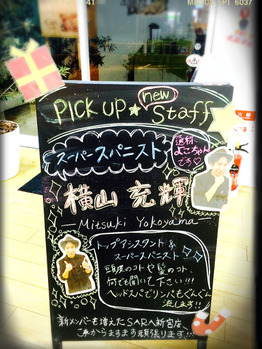 PICK UP★ new Staff
スーパースパニスト
通称
よこちゃん
です♡
横山 充輝
Mitsuki Yokoyama
トップアシスタント &
スーパースパニスト
頭皮のコトや髪のコト、
何でも聞いて下さい!!!
ヘッドスパでリンパもぐんぐん
流します!!
新メンバーも増えたSARA新宮店
これからますます頑張ります!!!